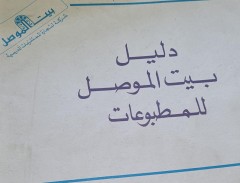 بيت الموصل
دليل
بيت الموصل
للمطبوعات